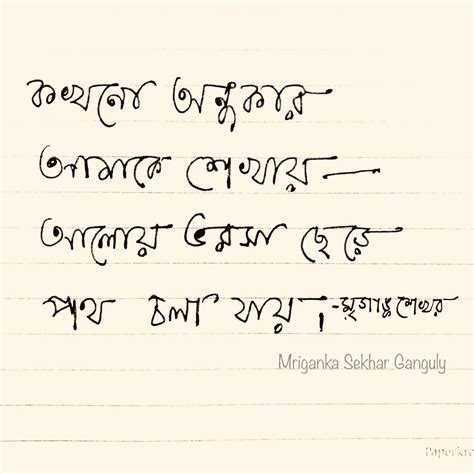 কখনো অন্ধকার
আমাকে শেখায় —
আলোয় ভরসা ছেড়ে
পথ চলা যায়। -মৃগাঙ্কশেখর
Mriganka Sekhar Ganguly